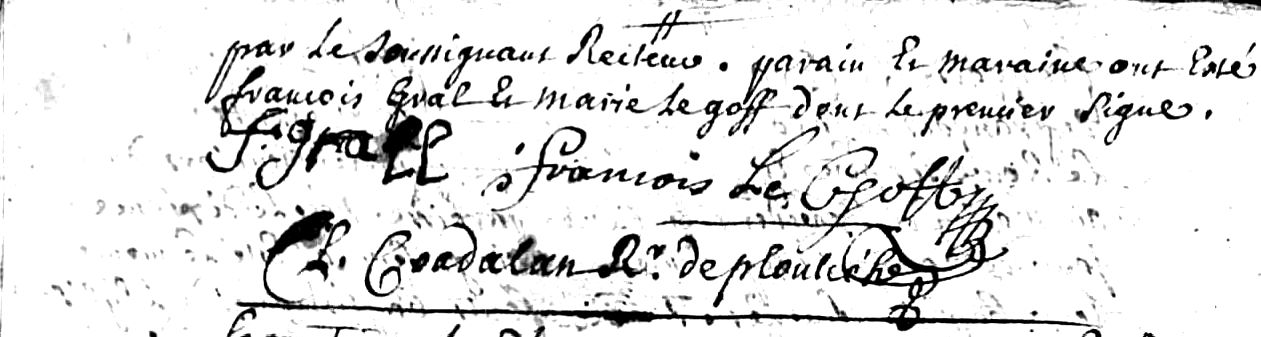 par Le soussignant Recteur. parain Et maraine ont Esté
françois Gral Et marie Le goff dont Le premier signe.
f. grall françois Le Goff
C L. Coadalan Rr. de ploulech